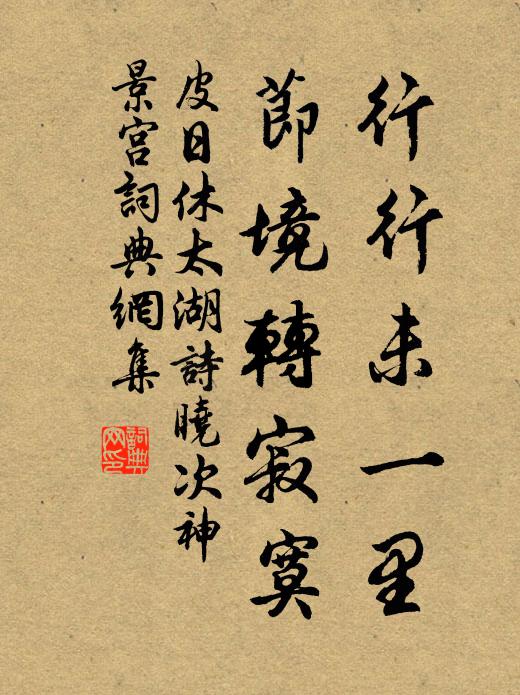 行行未一里
節境轉寂寞
皮日休太湖詩曉次神
景宮詞典網集
詞典网印